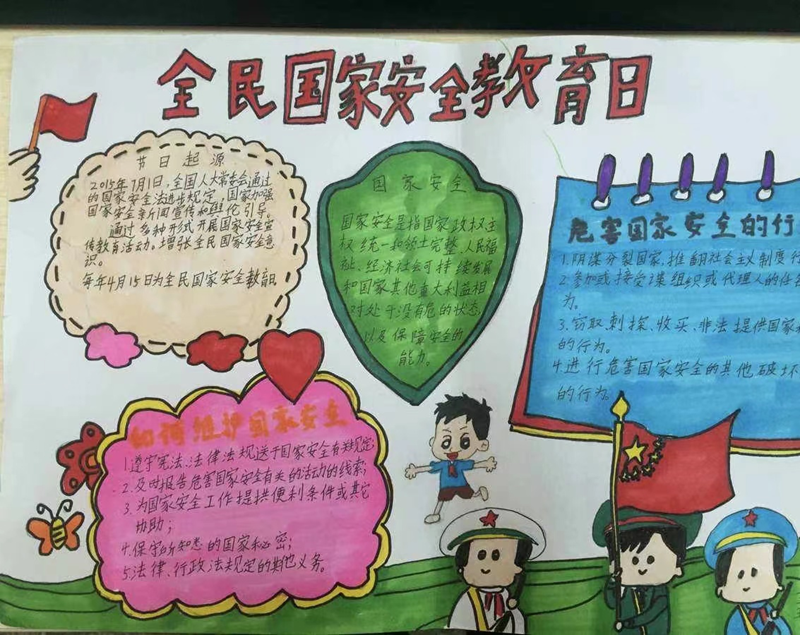 全民国家安全教育日
节日起源
2015年7月1日,全国人大常委会通过
的国家安全法进步规定,国家加强
国家安全新闻宣传和舆伦引导,
通过多种形式开展国家安全宣
传教育活动。增张全民国家安全意
识。
每年4月15日为全民国家安全教育日
国家安全
国家安全是指国家政权主
权统一和领土完整、人民福
祉、经济社会可持续发展
和国家其他重大利益相
对处于没有危的状态,
以及保障安全的
能力。
危害国家安全的行
1.阴谋分裂国家,推翻社会主义制度行
2.参加或接受谍组织或代理人的任
为。
3.窃取刺探、收买、非法提供国家
的行为。
4.进行危害国家安全的其他破坏
的行为。
如何维护国家安全
1.遵守宪法、法律法规送于国家安全有关规定
2.及时报告危害国家安全有关的活动的线索;
3.为国家安全工作提拱便利条件或其它
协助;
4.保守所知悉的国家秘密;
5.法律、行政法规定的其他义务。